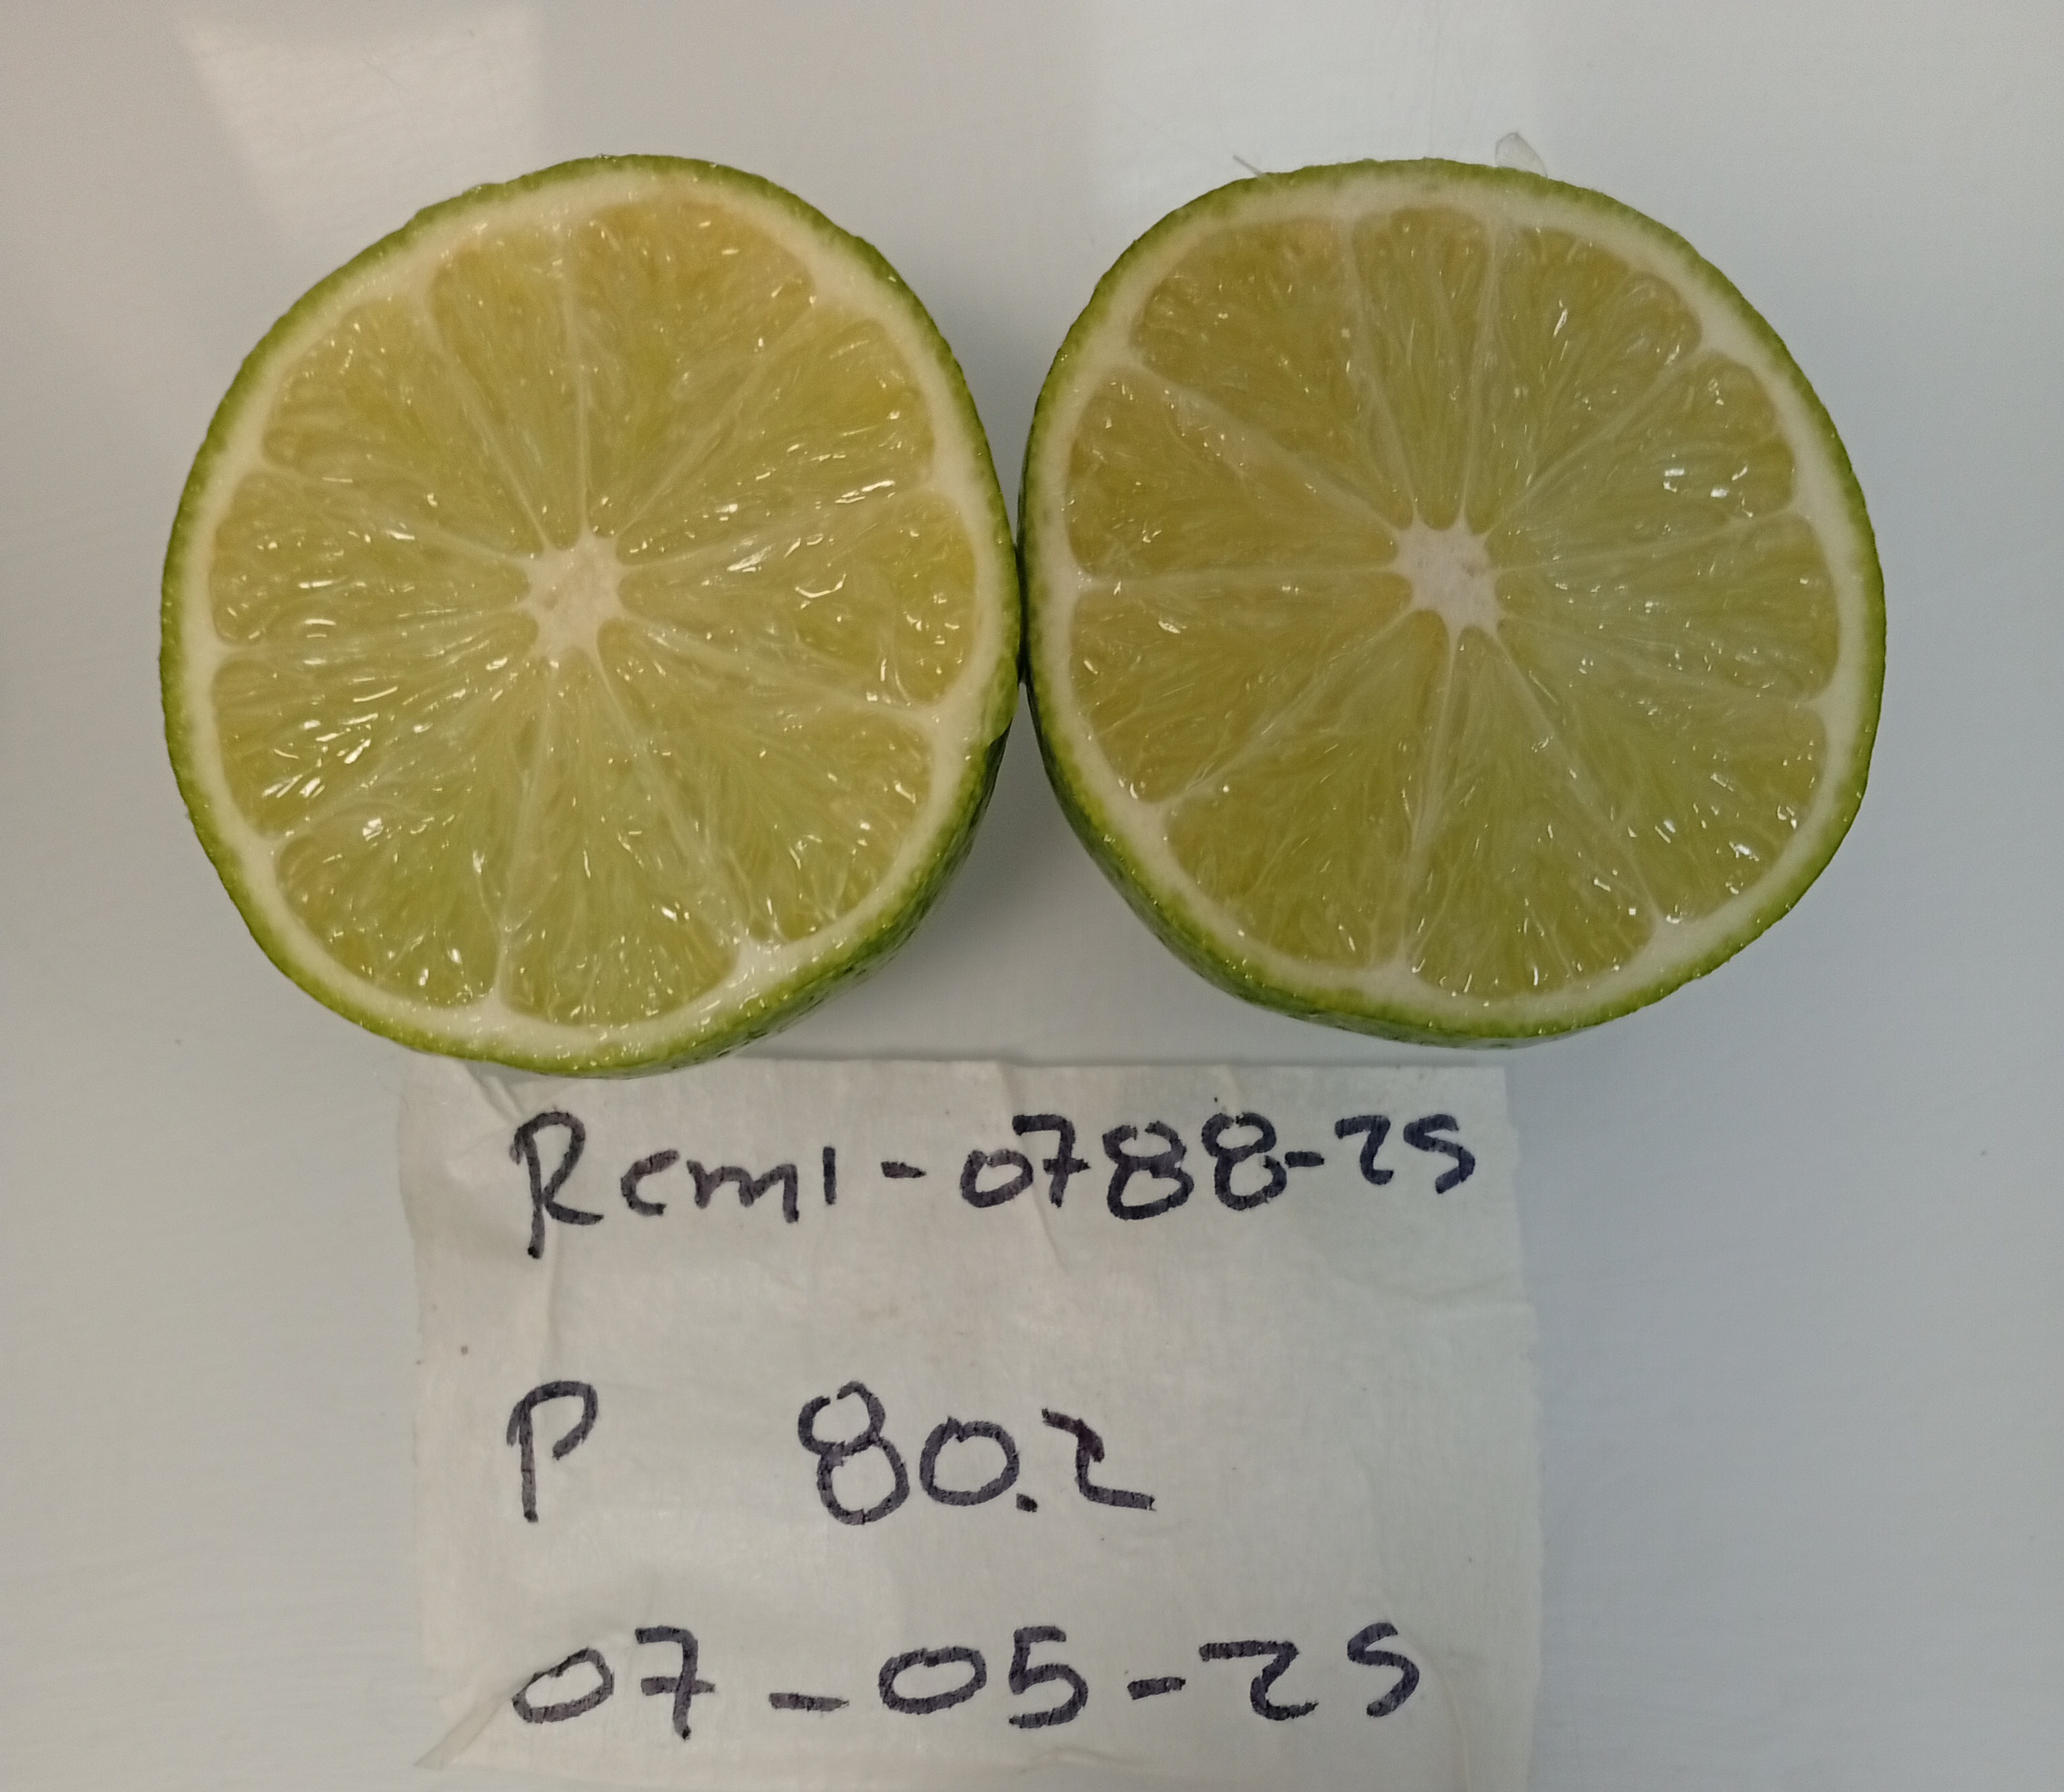 Rcml-0788-25
P 80.2
07-05-25